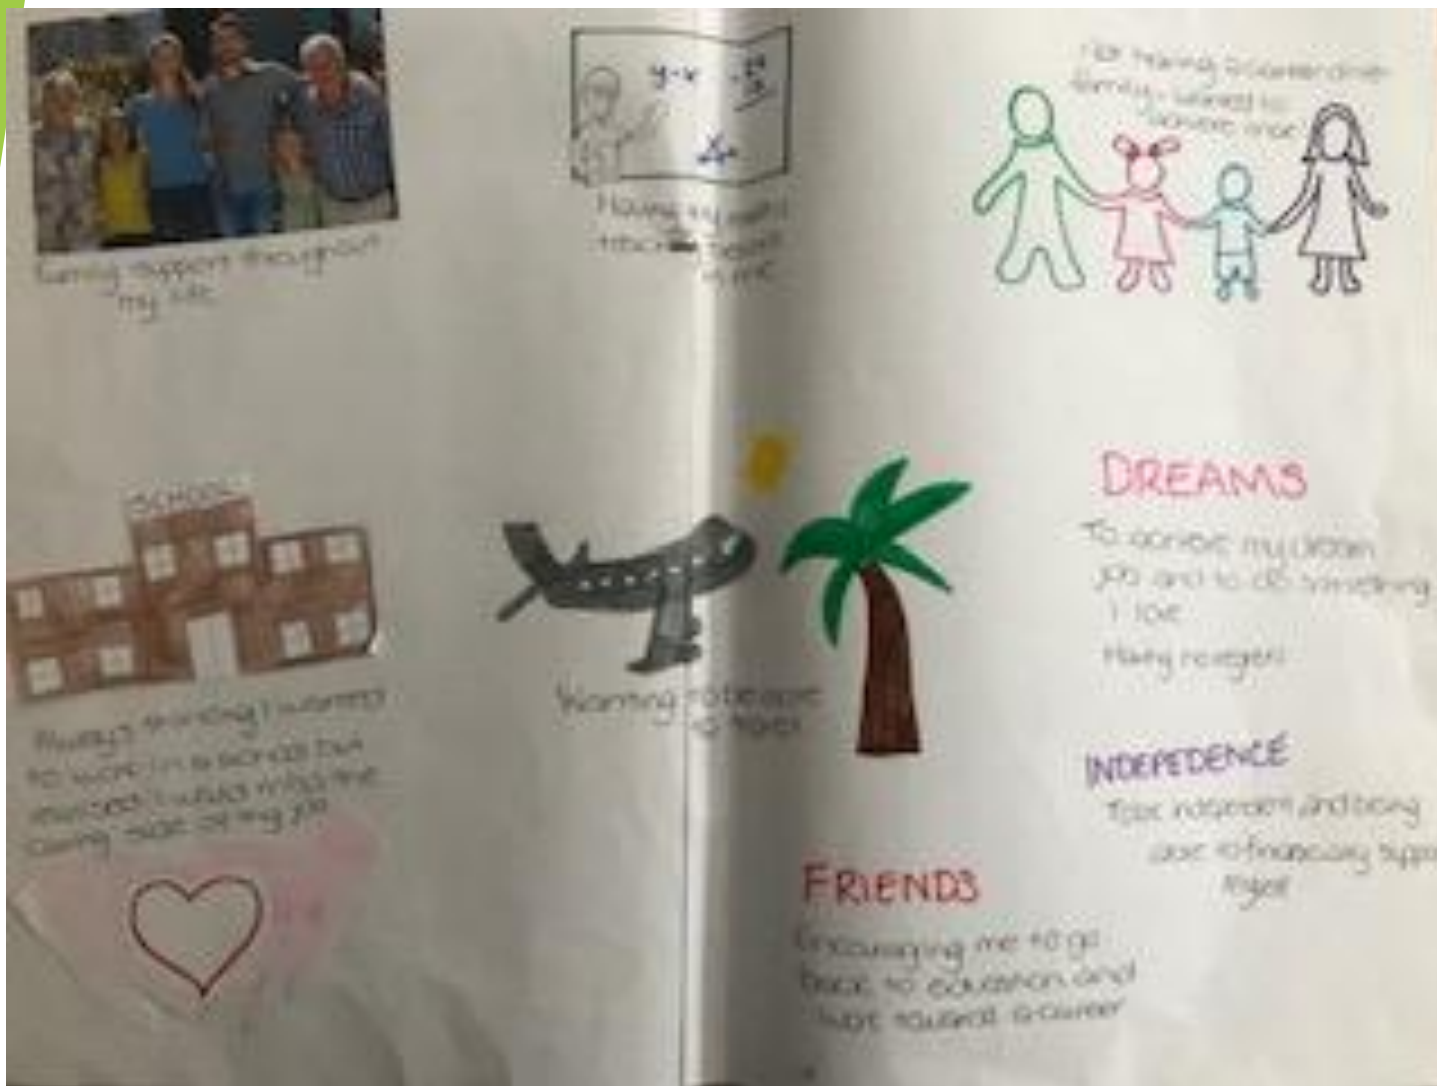 Family support throughout
my life
y-x
Having my maths
teacher believe
in me
Not having a career drive
family - wanted to
achieve one
SCHOOL
Always thinking I wanted
to work in a school but
realised I would miss the
caring side of my job
Wanting to be able
to travel
DREAMS
To achieve my dream
job and to do something
I love
Having no regrets
INDEPEDENCE
To be independent and being
able to financially suppo
myself
FRIENDS
Encouraging me to go
back to education and
work towards a career